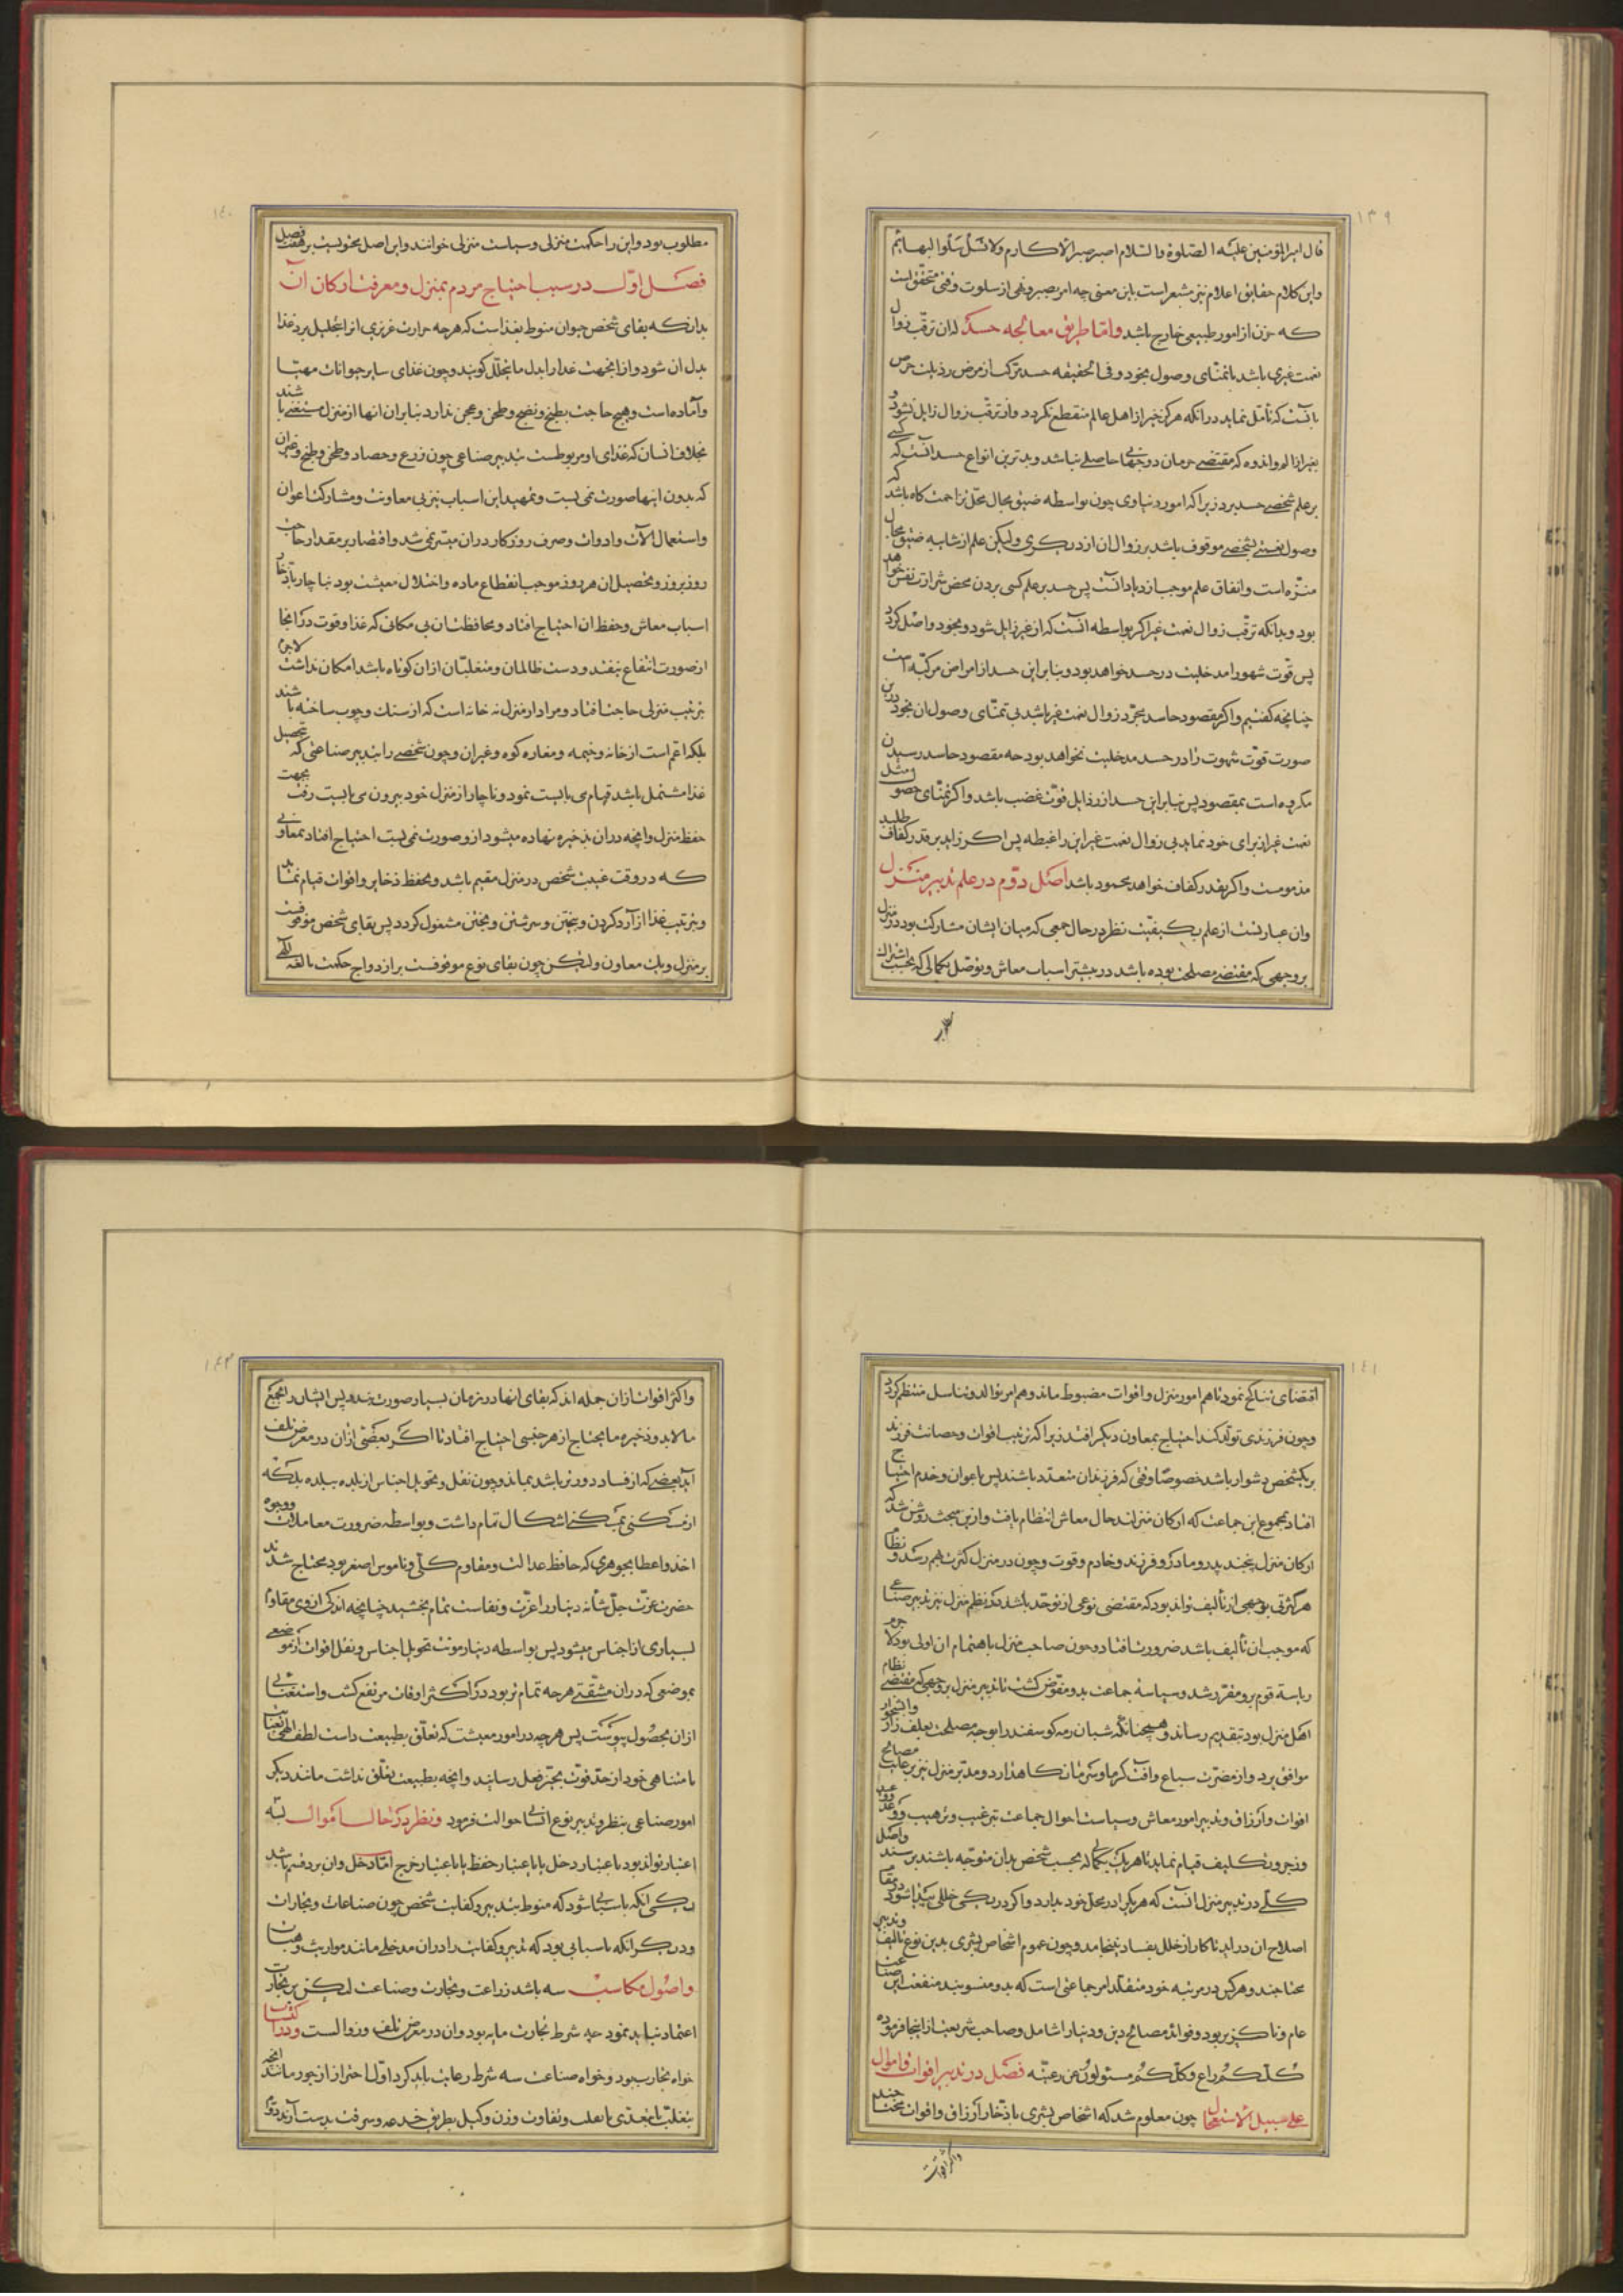 ١٣٩
قال امیرالمؤمنین علیه الصلوة والسلام اصبر صبر الاکارم ولا تسل سلوا البهایم
واین کلام حقایق اعلام نیز مشعر است باین معنی چه امر بصبر ونهی از سلوت وقتی متحقق است
که حزن از امور طبیعی خارج باشد واما طریق معالجه حسد که ان ترقب زوال
نعمت غیری باشد با تمنای وصول بخود وفی الحقیقه حسد مرکب از مرض رذیلت حرص
بانست که تأمل نماید در انکه هرکز خیر از اهل عالم منقطع نکردد واز ترقب زوال زایل نشود و
بغیر از الم واندوه که مقتضی حرمان دو جهانی حاصلی نباشد وبدترین انواع حسد انست که کسی
بر علم شخصی حسد برد زیرا که امور دنیاوی چون بواسطه ضیق مجال محل مزاحمت کاه باشد که
وصول نعمتی بشخصی موقوف باشد بر زوال ان از دیکری ولیکن علم از شایبه ضیق مجال
منزه است وانفاق علم موجب ازدیاد انست پس حسد بر علم کسی بردن محض شرارت نفس خواهد
بود وبدانکه ترقب زوال نعمت غیر اکر بواسطه انست که از غیر زایل شود وبخود واصل کردد
پس قوت شهورا مدخلیت در حسد خواهد بود وبنابراین حسد از امراض مرکبه است
چنانچه کفتیم واکر مقصود حاسد مجرد زوال نعمت غیر باشد بی تمنای وصول ان بخود درین
صورت قوت شهوت را در حسد مدخلیت نخواهد بود چه مقصود حاسد رسیدن
مکروه است بمقصود پس بنابراین حسد از رذایل قوت غضب باشد واکر تمنای حصول مثل
نعمت غیر از برای خود نماید بی زوال نعمت غیر این را غبطه پس اکر زاید بر قدر کفاف طلبد
مذمومست واکر بقدر کفاف خواهد محمود باشد اصل دوم در علم تدبیر منزل
وان عبارتست از علم بکیفیت نظر در حال جمعی که میان ایشان مشارکت بود در منزل
بروجهی که مقتضی مصلحت بوده باشد در تیسر اسباب معاش وتوصل بکمالی که بحسب اشتراک
١٤٠
مطلوب بود واین را حکمت منزلی وسیاست منزلی خوانند واین اصل محتویست بر هفت فصل
فصل اول در سبب احتیاج مردم بمنزل ومعرفت ارکان ان
بدانکه بقای شخص حیوان منوط بغذاست که هرچه حرارت غریزی انرا تحلیل برد غذا
بدل ان شود واز اینجهت غدا را بدل ما یتحلل کویند وچون غذای سایر حیوانات مهیا
وآماده است وهیچ حاجت بطبخ ونضج وطحن وعجن ندارد بنابران انها از منزل مستغنی باشند
بخلاف انسان که غذای او مربوطست بتدبیر صناعی چون زرع وحصاد وطحن وطبخ وغیران
که بدون اینها صورت نمی بست وتمهید این اسباب نیز بی معاونت ومشارکت اعوان
واستعمال الآت وادوات وصرف روزکار دران میسر نمی شد واقتصار بر مقدار حاجت
روز بروز وتحصیل ان هر روز موجب انقطاع ماده واختلال معیشت بود بناچار بادخار
اسباب معاش وحفظ ان احتیاج افتاد ومحافظت ان بی مکانی که غذا وقوت در انجا
از صورت انتفاع نیفتد ودست ظالمان ومتغلبان ازان کوتاه باشد امکان نداشت لاجرم
بترتیب منزلی حاجت افتاد ومراد از منزل نه خانه است که از سنک وچوب ساخته باشند
بلکه اعم است از خانه وخیمه ومغاره کوه وغیران وچون شخصی را بتدبیر صناعتی که تحصیل
غذا مشتمل باشد قیام می بایست نمود وناچار از منزل خود بیرون می بایست رفت بجهت
حفظ منزل وانچه دران ذخیره نهاده میشود از وصورت نمی بست احتیاج افتاد بمعاونی
که در وقت غیبت شخص در منزل مقیم باشد وبحفظ ذخایر واقوات قیام نماید
وبترتیب غذا از آرد کردن وبیختن وسرشتن وپختن مشغول کردد پس بقای شخص موقوفست
بر منزل وبان معاون ولیکن چون بقای نوع موقوفست بر ازدواج حکمت بالغه الهی
١٤١
اقتضای تناکح نمود تا هم امور منزل واقوات مضبوط ماند وهم امر توالد وتناسل منتظم کردد
وچون فرزندی تولد کند احتیاج بمعاون دیکر افتد زیرا که ترتیب اقوات وحضانت فرزند
بر یکشخص دشوار باشد خصوصا وقتی که فرزندان متعدد باشند پس باعوان وخدم احتیاج
افتاد بمجموع این جماعت که ارکان منزلند حال معاش انتظام یافت وازین مبحث روشن شد که
ارکان منزل پنجند پدر ومادر وفرزند وخادم وقوت وچون در منزل کثرت بهم رسد ونظام
هر کثرتی بوجهی از تألیف تواند بود که مقتضی نوعی از توحد باشد در نظم منزل نیز بتدبیر صناعی
که موجب ان تألیف باشد ضرورت افتاد وچون صاحب منزل باهتمام ان اولی بود لاجرم
ریاسة قوم برو مقرر شد وسیاسة جماعت بدو مفوض کشت تا تدبیر منزل بر وجهی که مقتضی نظام
اهل منزل بود بتقدیم رساند وهمچنانکه شبان رمه کوسفند را بوجه مصلحت بعلف زار وابشخور
موافق برد واز مضرت سباع وافت کرما وسرما نکاهدارد ومدبر منزل نیز برعایت مصالح
اقوات وارزاق وتدبیر امور معاش وسیاست احوال جماعت بترغیب وترهیب ووعد وعید
وزجر وتکلیف قیام نماید تا هر یک بکمالی که بحسب شخص بدان متوجه باشند برسند واصل
کلی در تدبیر منزل انست که هر یکی را در محل خود بدارد واکر در یکی خللی پیدا شود در مقام
اصلاح ان دراید تا کار از خلل بفساد نینجامد وچون عموم اشخاص بشری بدین نوع تالیف وتدبیر
محتاجند وهر کس در مرتبه خود متقلد امر جماعتی است که بدو منسوبند منفعت این صناعت
عام وناکزیر بود وفواید مصالح دین ودنیا را شامل وصاحب شریعت از اینجا فرموده
کلکم راع وکلکم مسئولون عن رعیته فصل در تدبیر اقوات واموال
علی سبیل الاستعجال چون معلوم شد که اشخاص بشری بادخار ارزاق واقوات محتاجند
واکثر اقوات
١٤٢
واکثر اقوات ازان جمله اند که بقای انها در زمان بسیار صورت نبندد پس ایشان را بجمع
مالابد وذخیره مایحتاج از هر جنسی احتیاج افتاد تا اکر بعضی ازان در معرض تلف
آید بعضی که از فساد دورتر باشد بماند وچون نقل وتحویل اجناس از بلده ببلده بلکه
از مسکنی بمسکنی اشکال تمام داشت وبواسطه ضرورت معاملات ووجوه
اخذ واعطا بجوهری که حافظ عدالت ومقاوم کلی وناموس اصغر بود محتاج شدند
حضرت عزت جل شأنه دینار را عزت ونفاست تمام بخشید چنانچه اندکی از وی مقاوم
بسیاری از اجناس میشود پس بواسطه دینار مونت تحویل اجناس ونقل اقوات از موضعی
بموضعی که دران مشقتی هرچه تمام تر بود در اکثر اوقات مرتفع کشت واستغنایی
ازان بحصول پیوست پس هرچه در امور معیشت که تعلق بطبیعت داست لطف الهی بعنایت
نامتناهی خود از حد قوت بحیز فعل رسانید وانچه بطبیعت تعلق نداشت مانند دیکر
امور صناعی بنظر وتدبیر نوع انسانی حوالت فرمود ونظر در حال اموال بسه
اعتبار تواند بود باعتبار دخل یا باعتبار حفظ یا باعتبار خرج اما دخل وان بر دو قسم باشد
یکی انکه باسبابی شود که منوط بتدبیر وکفایت شخص چون صناعات وتجارات
ودیکر انکه باسبابی بود که تدبیر وکفایت را دران مدخلی مانند مواریث وهبات
واصول مکاسب سه باشد زراعت وتجارت وصناعت لیکن بر تجارت
اعتماد نباید نمود چه شرط تجارت مایه بود وان در معرض تلف وزوالست ودر اکتساب
خواه تجارت بود وخواه صناعت سه شرط رعایت باید کرد اولا احتراز از جور مانند انچه
بتغلب یا تعدی یا تقلب وتفاوت وزن وکیل بطریق خدعه وسرقت بدست آرند دوم